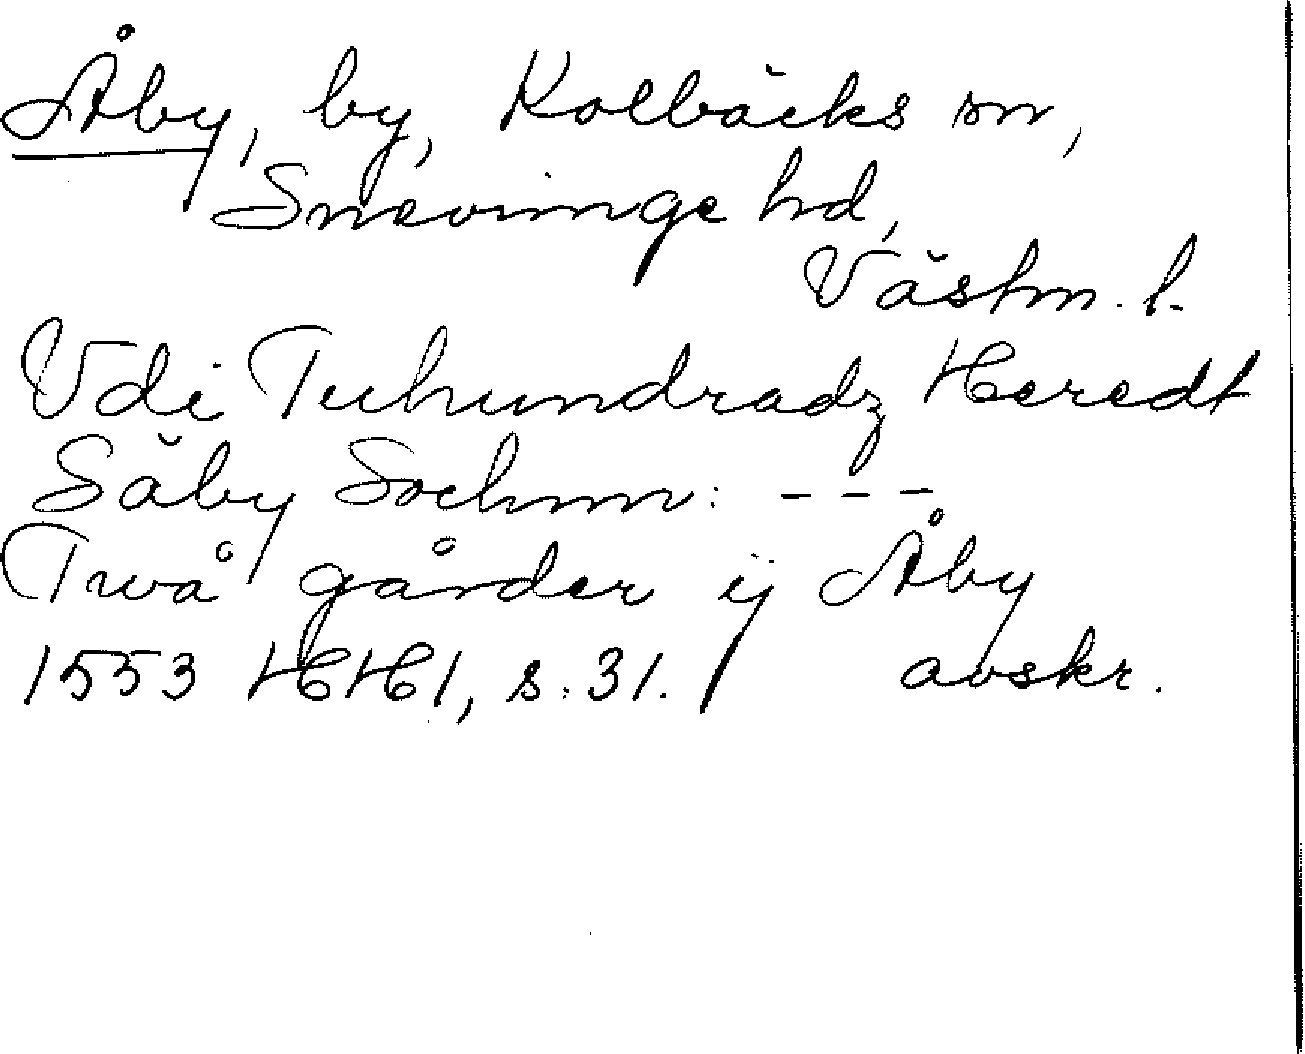 Åby, by, Kolbäcks sn,
Snevringe hd,
Västm. l.
Vdi Tuhundradz Heredt
Säby Sochnn: - - -
Twå gårder ij Åby
1553 HH1, s. 31. avskr.